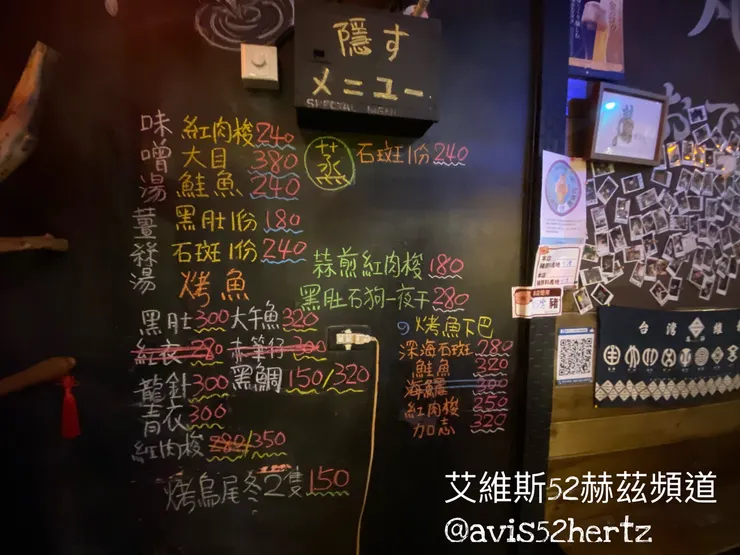 隠す
メニュー
SPECIAL MENU
味噌湯
紅肉梭 240
大目 380
鮭魚 240
薑絲湯
黑肚1份 180
石斑1份 240
蒸 石斑1份 240
烤魚
黑肚 300 大午魚 320
紅衣 280 赤筆仔 300
龍針 300 黑鯛 150/320
青衣 300
紅肉梭 280/350
烤烏尾冬2隻 150
蒜煎紅肉梭 180
黑肚石狗一夜干 280
烤魚下巴
深海石斑 280
鮭魚 320
海鱺 300
紅肉梭 250
加志 320
豬
台湾維
艾維斯52赫茲頻道
@avis52hertz